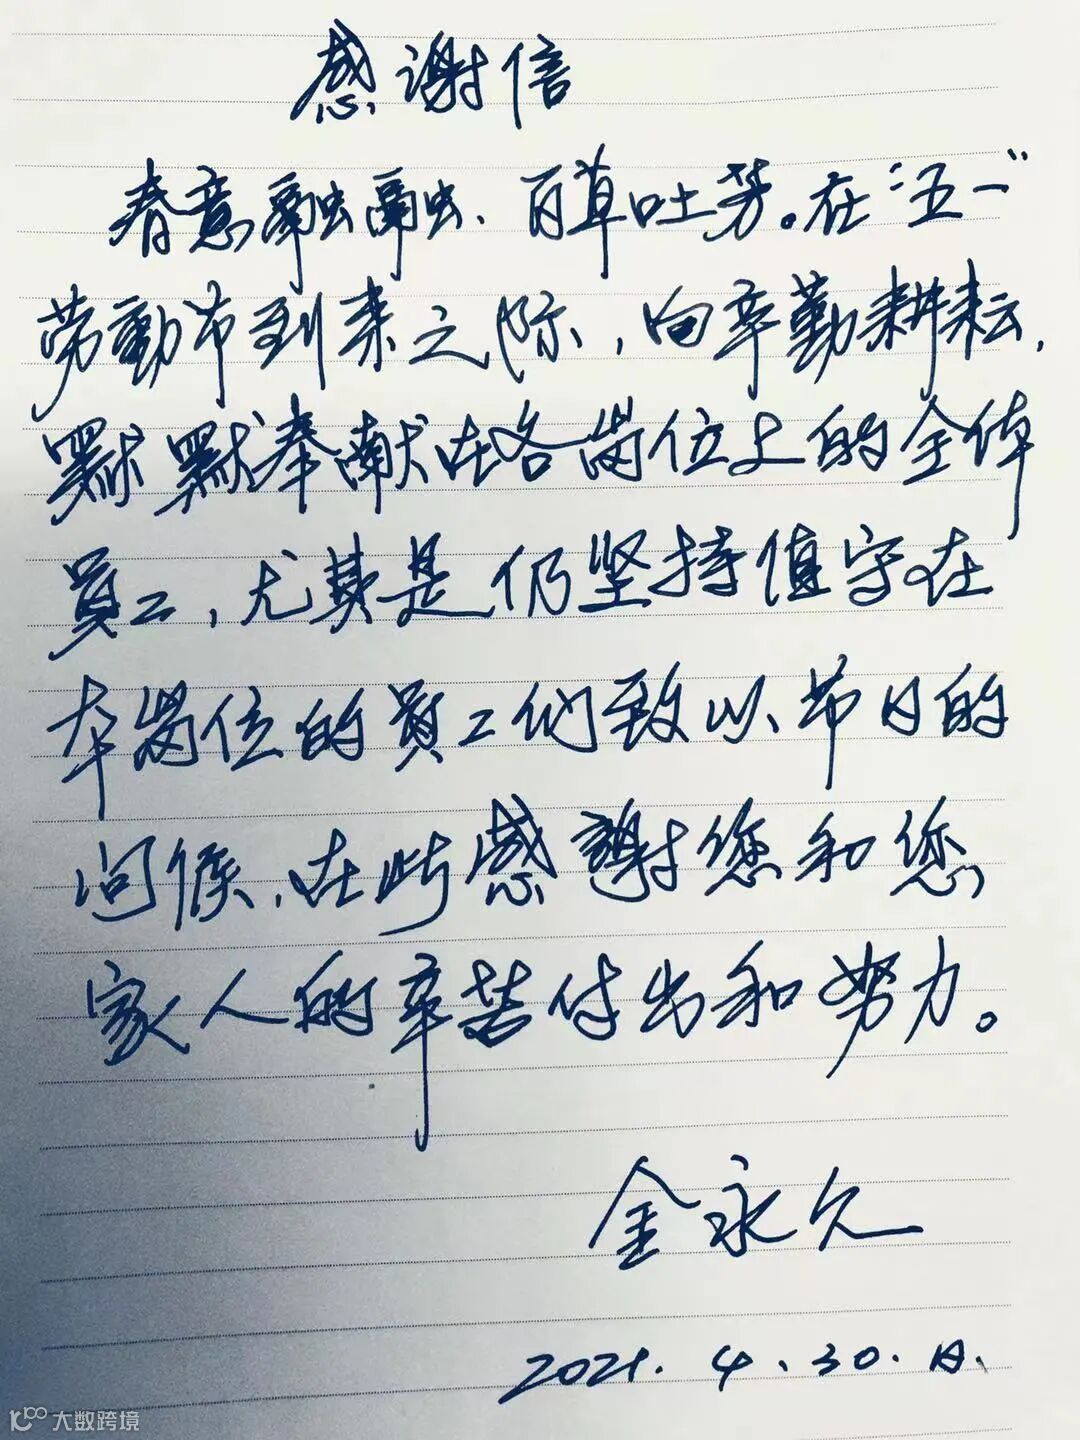 感谢信
春意融融、百草吐芳。在“五一”
劳動节到来之际，向辛勤耕耘，
默默奉献在各岗位上的全体
員工，尤其是仍坚持值守在
本岗位的員工们致以节日的
问候，在此感謝您和您
家人的辛苦付出和努力。
金永久
2021.4.30.日.
大数跨境